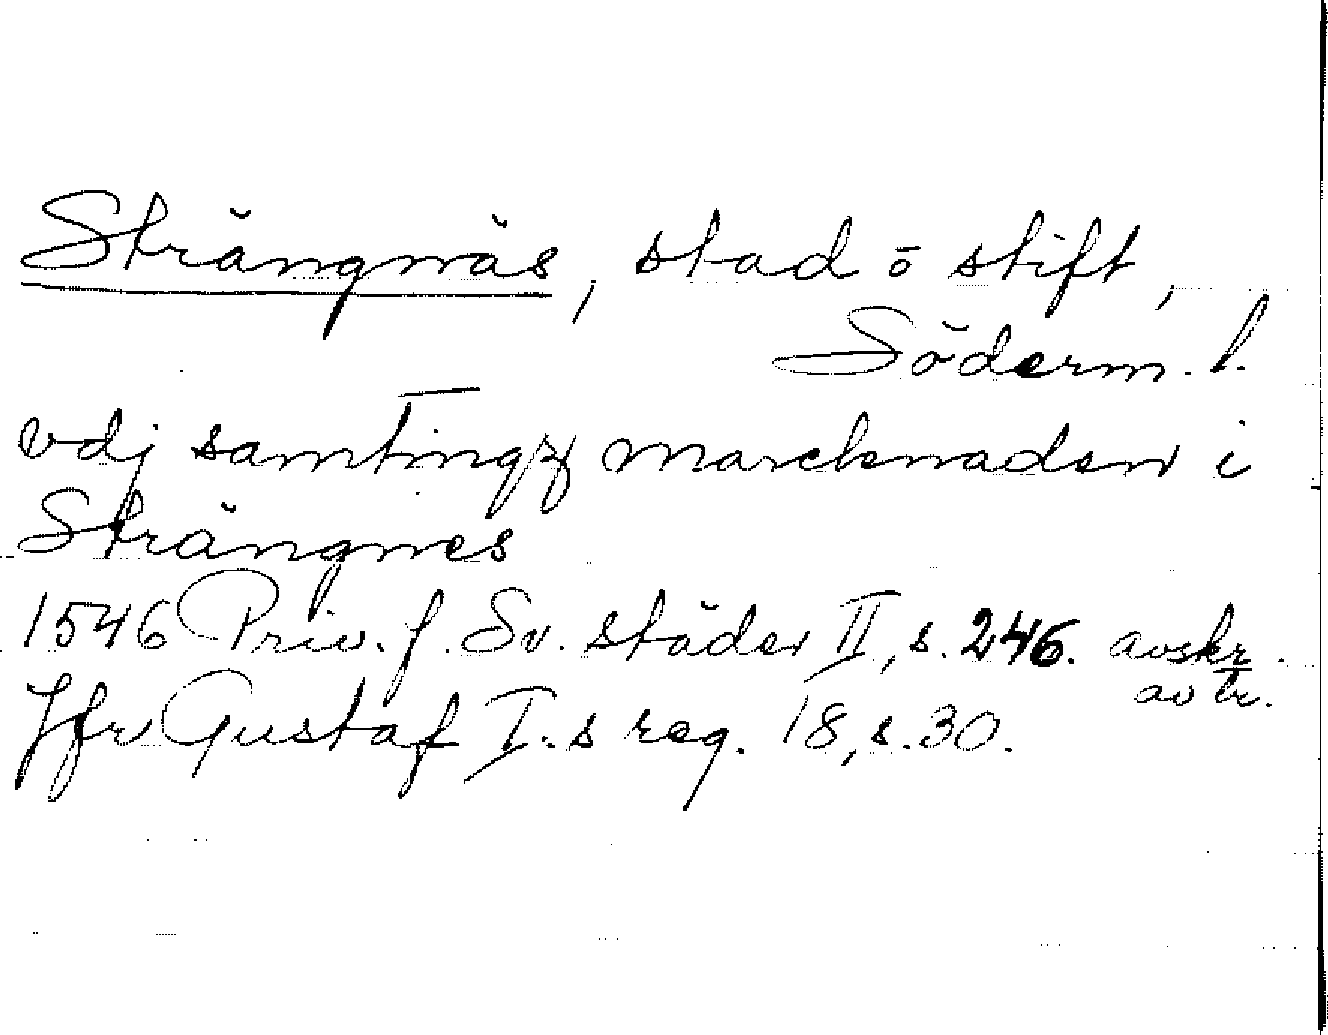 Strängnäs, stad o stift,
Söderm. l.
vdj samting marcknaden i
Strängnes
1546 Priv. f. Sv. städer II, s. 246. avskr.
av br.
Jfr Gustaf I.s reg. 18, s. 30.